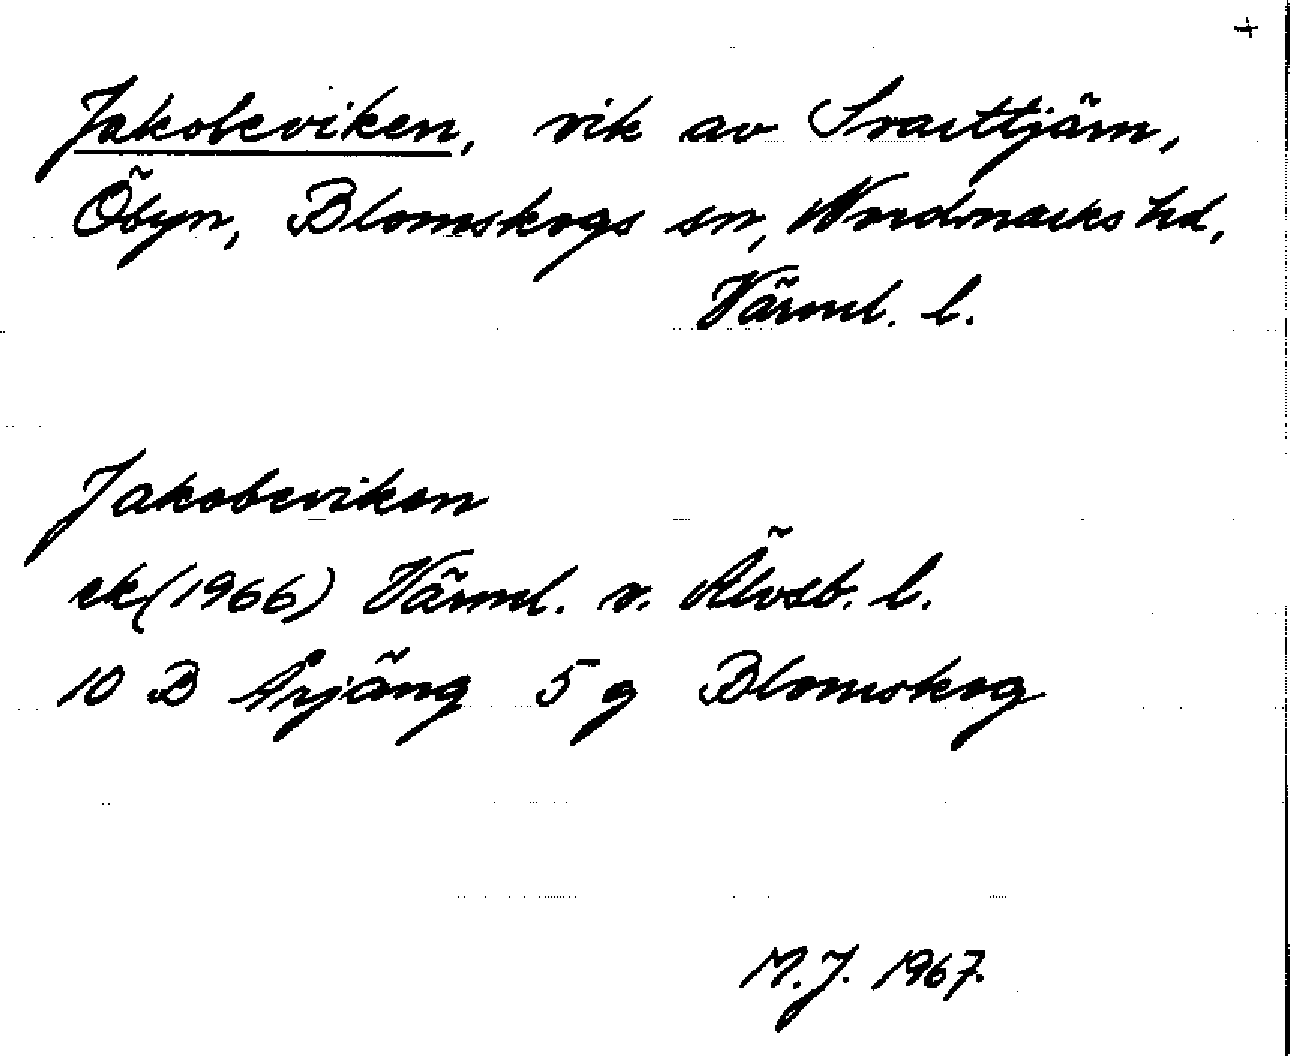 +
Jakobsviken, vik av Svarttjärn,
Öbyn, Blomskogs sn, Nordmarks hd,
Värml. l.
Jakobsviken
ek (1966) Värml. o. Älvsb. l.
10 B Årjäng 5 g Blomskog
M.J. 1967.